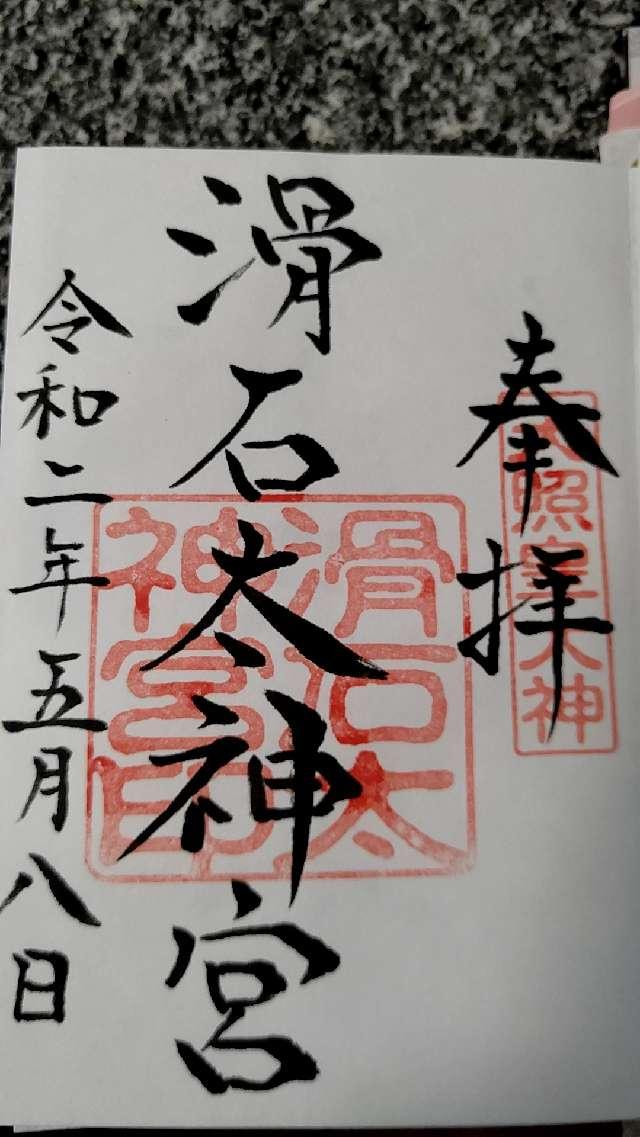 奉拝
天照皇大神
滑石太神宮
滑石太
神宮印
令和二年五月八日